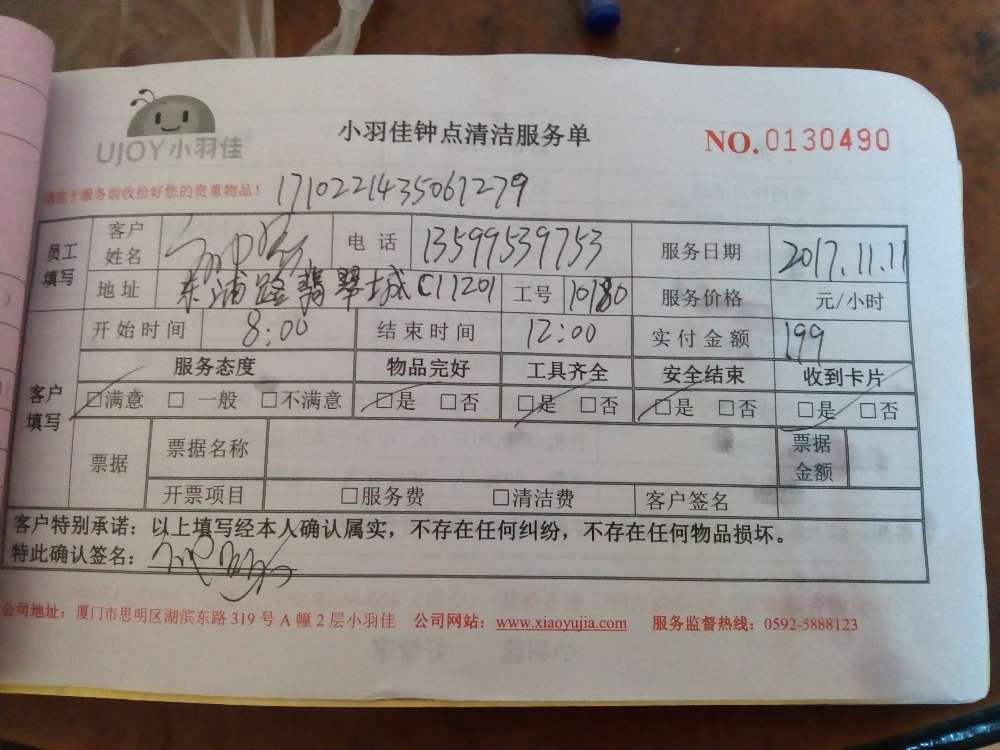 UJOY小羽佳
小羽佳钟点清洁服务单
NO.0130490
请您于服务前收拾好您的贵重物品！ 171022143506 1279
员工填写 客户姓名 电话 13599539753 服务日期 2017.11.11
地址 东浦路翡翠城C11201 工号 10180 服务价格 元/小时
客户填写 开始时间 8:00 结束时间 12:00 实付金额 199
服务态度 物品完好 工具齐全 安全结束 收到卡片
□满意 □ 一般 □不满意 □是 □否 □是 □否 □是 □否 □是 □否
票据 票据名称 票据金额
开票项目 □服务费 □清洁费 客户签名
客户特别承诺：以上填写经本人确认属实，不存在任何纠纷，不存在任何物品损坏。
特此确认签名：
公司地址：厦门市思明区湖滨东路 319 号 A 幢 2 层小羽佳 公司网站：www.xiaoyujia.com 服务监督热线：0592-5888123